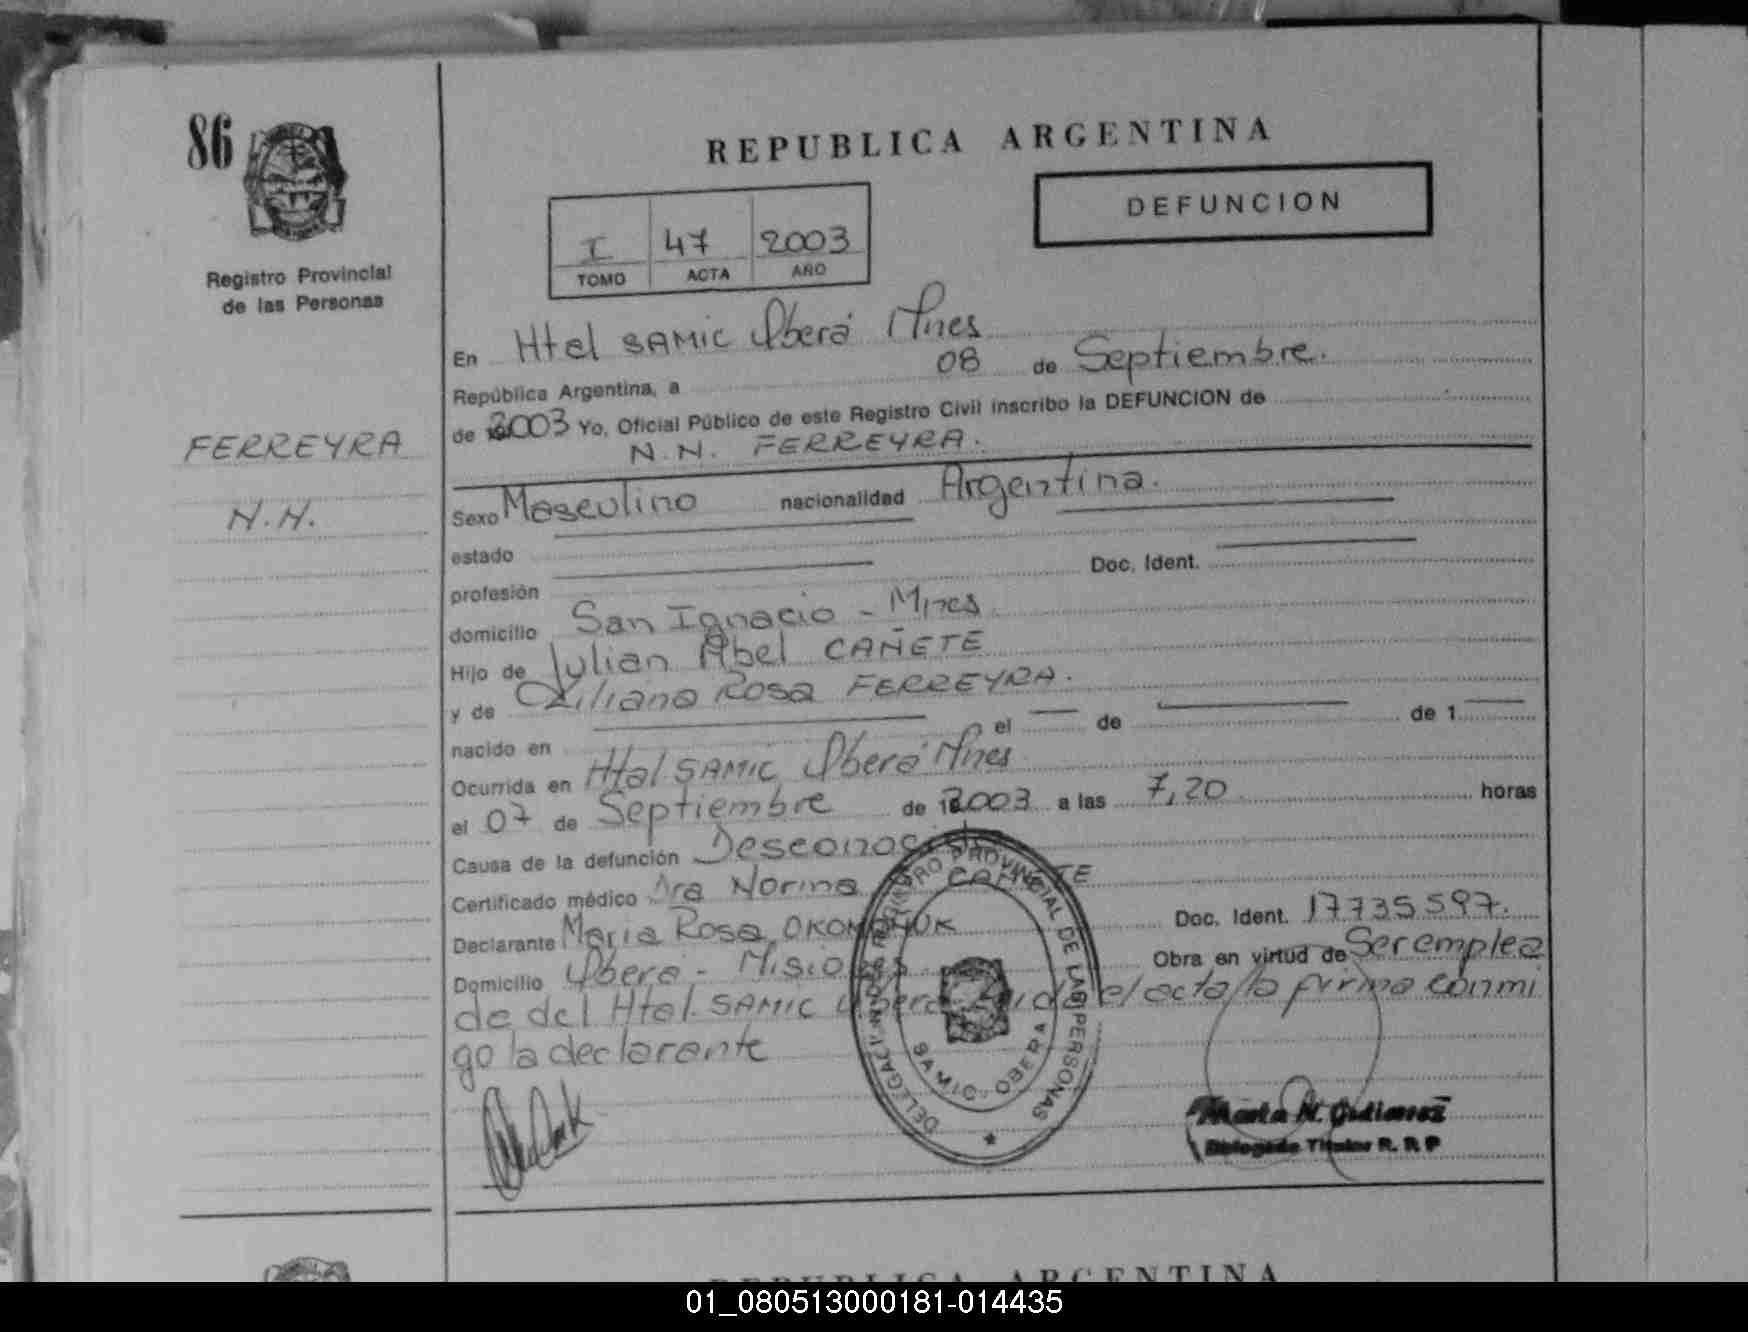 86
REPUBLICA ARGENTINA
DEFUNCION
I 47 2003
TOMO ACTA AÑO
Registro Provincial
de las Personas
FERREYRA
N.N.
En Htal SAMIC Oberá Mnes
República Argentina, a 08 de Septiembre.
de 2003 Yo, Oficial Público de este Registro Civil inscribo la DEFUNCION de
N.N. FERREYRA.
Sexo Masculino nacionalidad Argentina.
estado
profesión Doc. Ident.
domicilio San Ignacio - Mnes
Hijo de Julian Abel CAÑETE
y de Liliana Rosa FERREYRA.
nacido en el de de 1
Ocurrida en Htal SAMIC Oberá Mnes
el 07 de Septiembre de 2003 a las 7,20 horas
Causa de la defunción
Certificado médico Dra Norma CAÑETE
Declarante Maria Rosa Doc. Ident. 17735597.
Domicilio Oberá - Misiones Obra en virtud de Ser emplea
da del Htal SAMIC Oberá el acta la firma conmi
go la declarante
DELEGACION REGISTRO PROVINCIAL DE LAS PERSONAS
SAMIC - OBERA
Marta N. Gutierrez
Delegada Titular R. P. P
REPUBLICA ARGENTINA
01_080513000181-014435